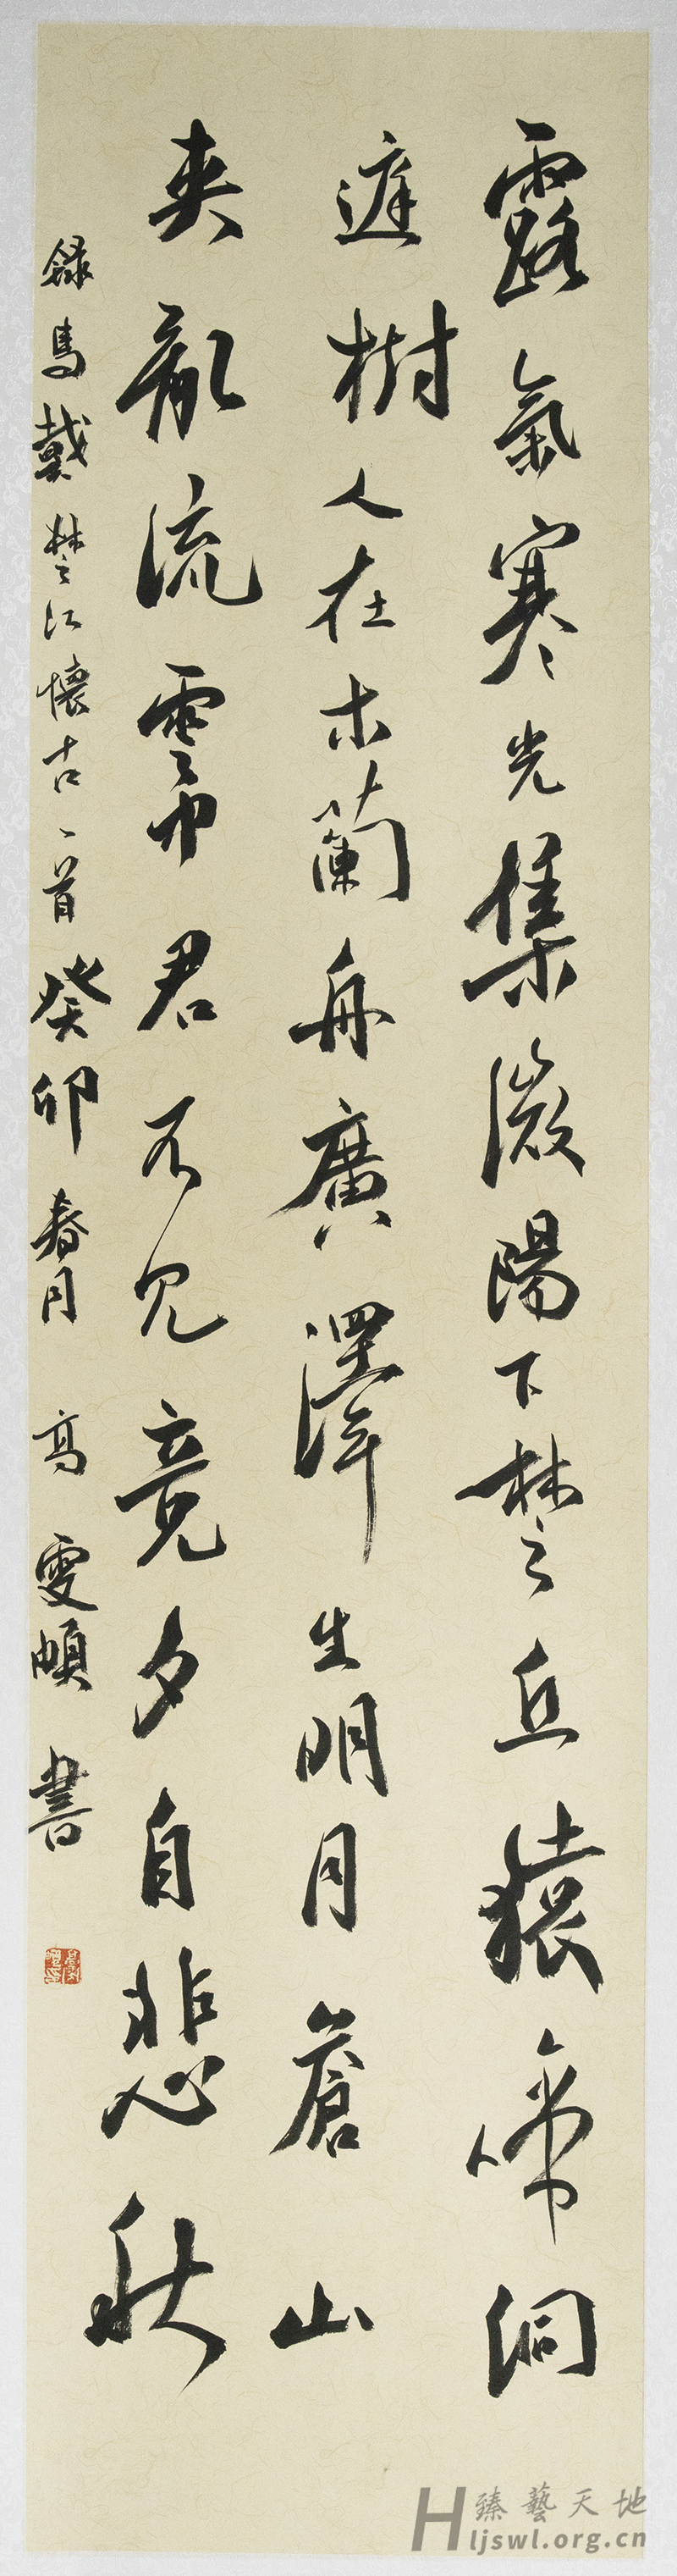 露氣寒光集微陽下楚丘猿啼洞
庭樹人在木蘭舟廣澤生明月蒼山
夾亂流雲中君不見竟夕自悲秋
錄馬戴楚江懷古一首癸卯春月 高雯頔書
臻藝天地
Hljswl.org.cn